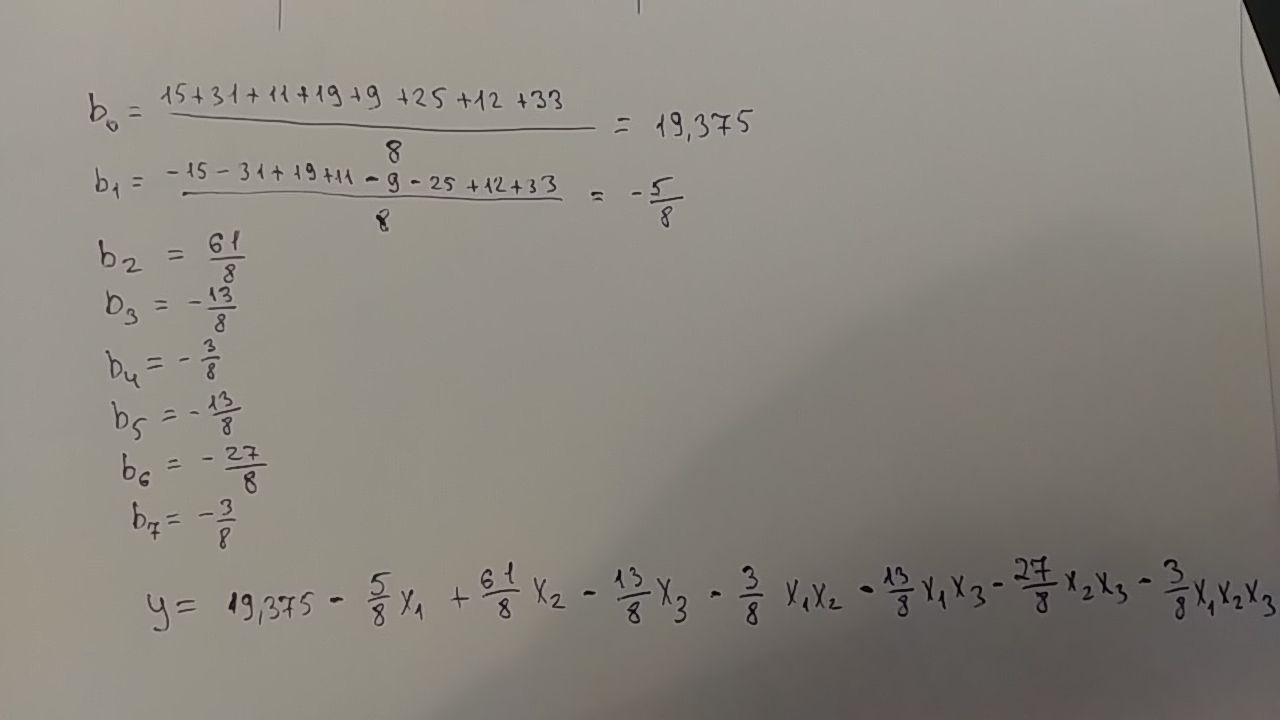 b₀ = (15+31+11+19+9+25+12+33)/8 = 19,375
b₁ = (-15-31+19+11-9-25+12+33)/8 = -5/8
b₂ = 61/8
b₃ = -13/8
b₄ = -3/8
b₅ = -13/8
b₆ = -27/8
b₇ = -3/8
y = 19,375 - 5/8 x₁ + 61/8 x₂ - 13/8 x₃ - 3/8 x₁x₂ - 13/8 x₁x₃ - 27/8 x₂x₃ - 3/8 x₁x₂x₃